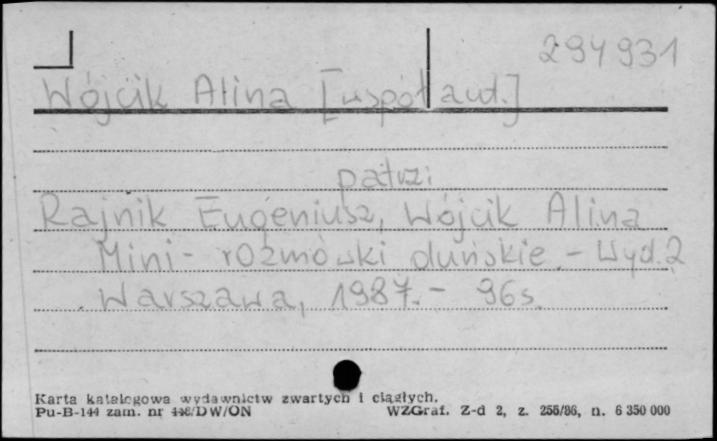 294931
Wójcik Alina [współaut.]
patrz:
Rajnik Eugeniusz, Wójcik Alina
Mini-rozmówki duńskie. - Wyd. 2
Warszawa, 1987. - 96s.
Karta katalogowa wydawnictw zwartych i ciągłych.
Pu-B-144 zam. nr DW/ON
WZGraf. Z-d 2, z. 255/86, n. 6 350 000